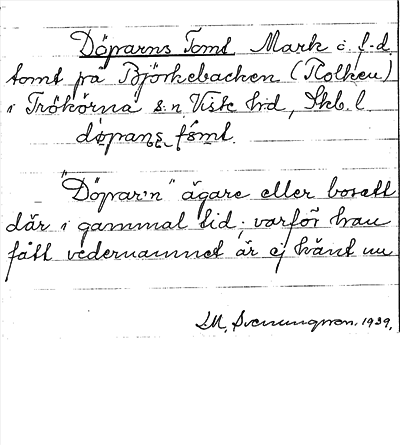 Döparns Tomt Mark å f. d.
tomt på Björkebacken (Rolken)
i Trökörna s:n Viste h:d, Skb. l.
døpanş tømt.
"Döpar'n" ägare eller bosatt
där i gammal tid; varför han
fått vedernamnet är ej känt nu
S.M. Svenungsson. 1939.